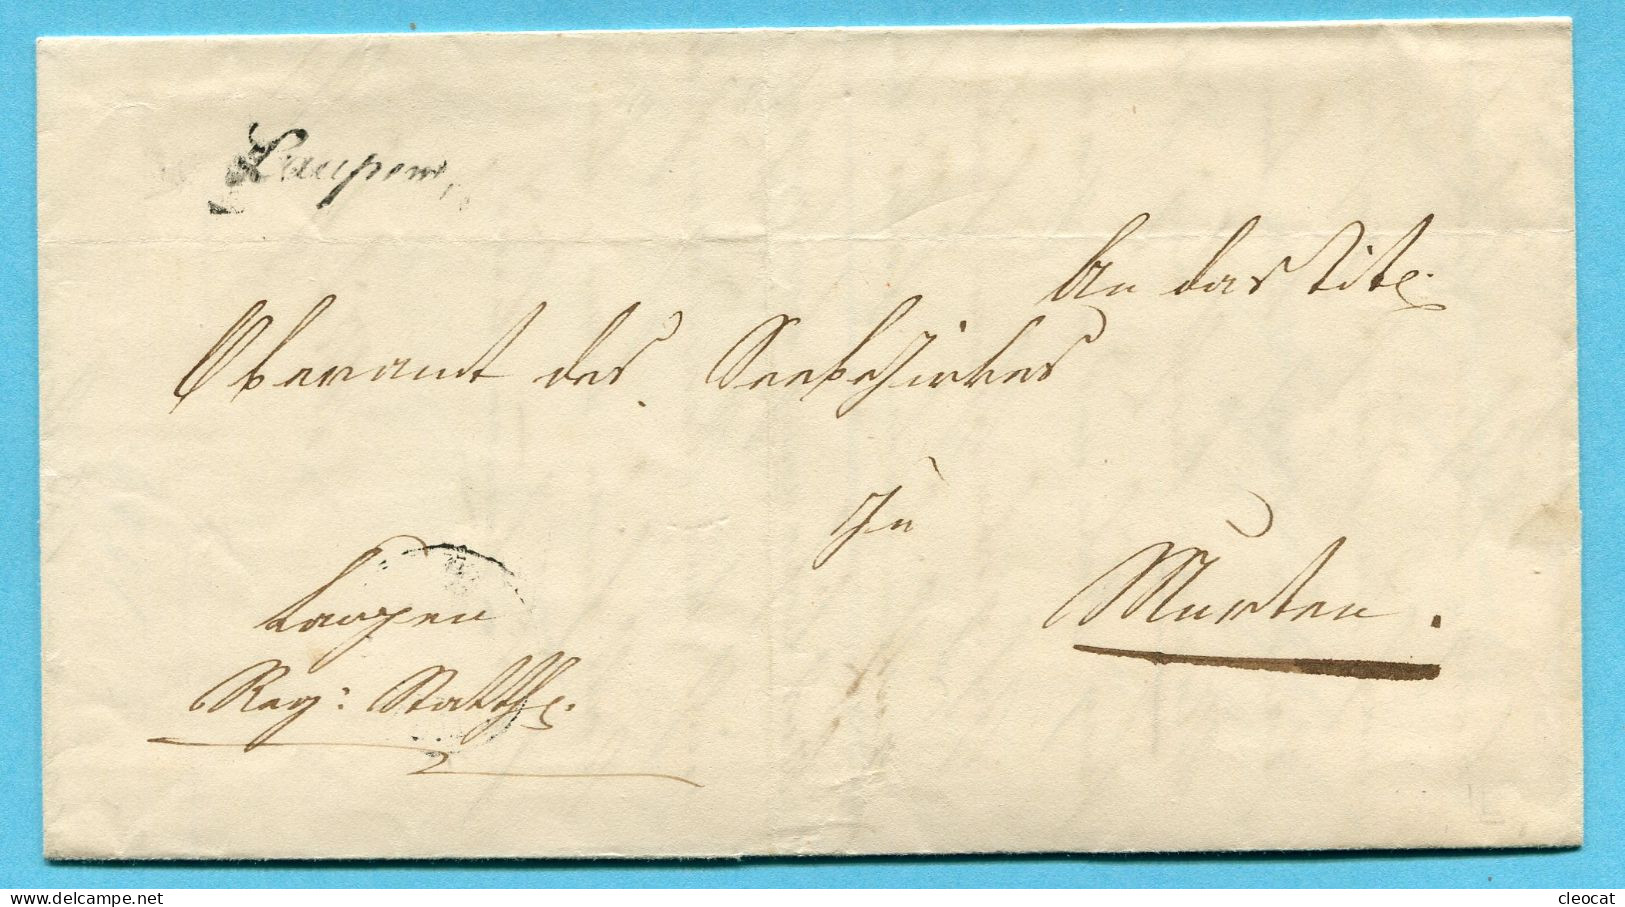 Laupen
An das Tit.
Oberamt des Seebezirkes
in
Murten.
Laupen
Reg: Statth.
cleocat